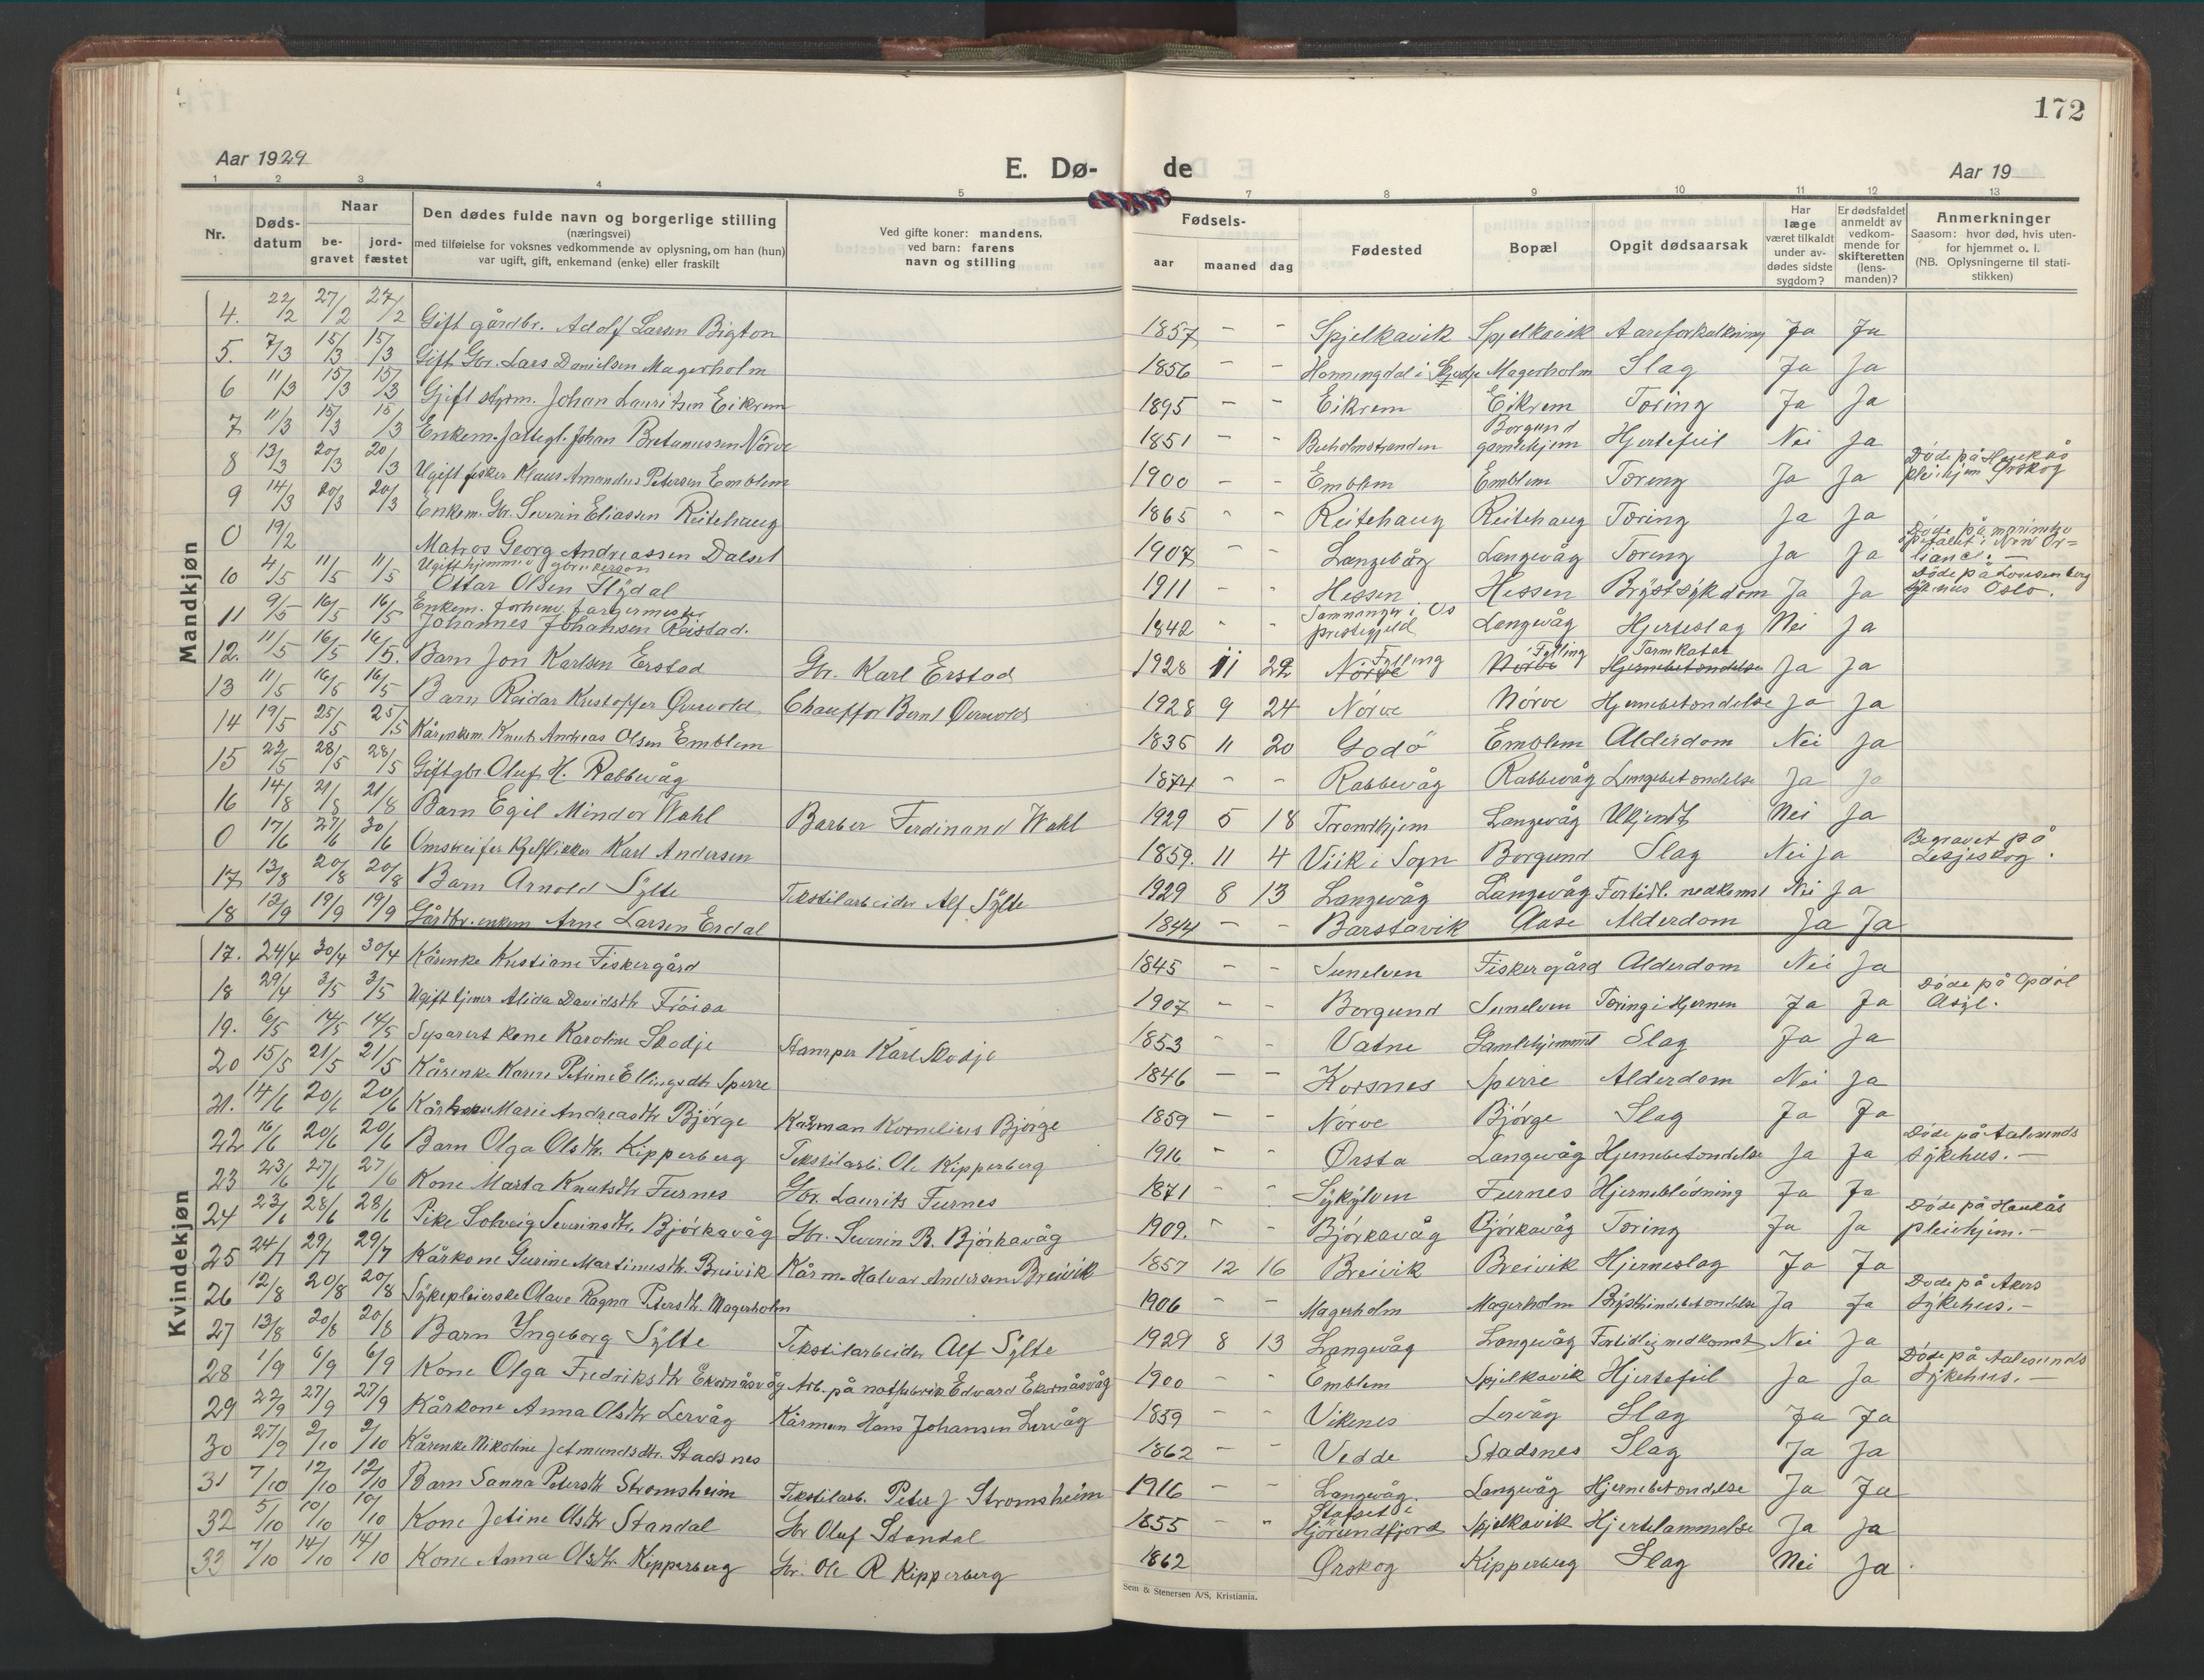 172
Aar 1929
E. Dø-
de
Aar 19
1 2 3 4 5 7 8 9 10 11 12 13
Nr.
Døds-
datum
Naar
be-
gravet
jord-
fæstet
Den dødes fulde navn og borgerlige stilling
(næringsvei)
med tilføielse for voksnes vedkommende av oplysning, om han (hun)
var ugift, gift, enkemand (enke) eller fraskilt
Ved gifte koner: mandens,
ved barn: farens
navn og stilling
Fødsels-
aar maaned dag
Fødested
Bopæl
Opgit dødsaarsak
Har
læge
været tilkaldt
under av-
dødes sidste
sygdom?
Er dødsfaldet
anmeldt av
vedkom-
mende for
skifteretten
(lens-
manden)?
Anmerkninger
Saasom: hvor død, hvis uten-
for hjemmet o. l.
(NB. Oplysningerne til stati-
stikken)
Mandkjøn
4. 22/2 27/2 27/2 Gift gårdbr. Adolf Larsen Bigton 1857 - - Spjelkavik Spjelkavik Aareforkalkning Ja Ja
5. 7/3 15/3 15/3 Gift Gbr. Lars Danielsen Magerholm 1856 - - Honningdal i Skodje Magerholm Slag Ja Ja
6 11/3 15/3 15/3 Gjift styrm. Johan Lauritsen Eikrem 1895 - - Eikrem Eikrem Tæring Ja Ja
7 11/3 15/3 15/3 Enkem. Johan Nørve 1851 - - Borgund gamlehjem Hjertefeil Nei Ja
8 13/3 20/3 20/3 Ugift fisker Klaus Amandus Petersen Emblem 1900 - - Emblem Emblem Tæring Ja Ja Døde på Haukås pleihjem Ørskog
9 14/3 20/3 20/3 Enkem. Gbr. Severin Eliassen Reitehaug 1865 - - Reitehaug Reitehaug Tæring Ja Ja
0 19/2 Matros Georg Andreassen Dalset 1907 - - Langevåg Langevåg Tæring Ja Ja Døde på marineho spitalet i New Or= lianes. -
10 4/5 11/5 11/5 Ugift hjemmev. gbrukerson
Ottar Olsen Flydal 1911 - - Hessen Hessen Brystsykdom Ja Ja Døde på Lovisenberg sykehus Oslo.
11 9/5 16/5 16/5 Enkem. forhenv. fargermester
Johannes Johansen Reistad. 1842 - - Samnanger i Os prestegjeld Langevåg Hjerteslag Nei Ja
12. 11/5 16/5 16/5. Barn Jon Karlsen Erstad Gbr. Karl Erstad 1928 11 29 Nørve Fylling Nørve Fylling Hjernebetændelse Tarmkatar Ja Ja
13 11/5 16/5 16/5 Barn Reidar Kristoffer Ørsvold Chauffør Bernt Ørsvold 1928 9 24 Nørve Nørve Hjernebetændelse Ja Ja
14 19/5 25/5 25/5 Kårenkem. Knut Andreas Olsen Emblem 1835 11 20 Godø Emblem Alderdom Nei Ja
15 22/5 28/5 28/5 Gift gbr. Oluf H. Rabbevåg 1874 - - Rabbevåg Rabbevåg Lungebetændelse Ja Ja
16 14/8 21/8 21/8 Barn Egil Mindor Wahl Barber Ferdinand Wahl 1929 5 18 Trondhjem Langevåg Ukjendt Nei Ja
0 17/6 27/6 30/6 Omstreifer Kjelflikker Karl Andersen 1859. 11 4 Viik i Sogn Borgund Slag Nei Ja Begravet på Lesjeskog.
17 13/8 20/8 20/8 Barn Arnold Sylte Tekstilarbeider Alf Sylte 1929 8 13 Langevåg Langevåg Fortidl. nedkomst Nei Ja
18 12/9 19/9 19/9 Gårdbr. enkem Arne Larsen Erdal 1844 - - Barstavik Aase Alderdom Ja Ja
Kvindekjøn
17. 24/4 30/4 30/4 Kårenke Kristiane Fiskergård 1845 - - Sunelven Fiskergård Alderdom Nei Ja
18 29/4 3/5 3/5 Ugift tjener Alida Davidsdtr Frøisa 1907 - - Borgund Sunelven Tæring i Hjernen Ja Ja Døde på Opdøl Asyl.
19. 6/5 14/5 14/5 Separert kone Karoline Skodje Stamper Karl Skodje 1853 - - Vatne Gamlehjemmet Slag Ja Ja
20 15/5 21/5 21/5 Kårenke Karen Petrine Ellingsdtr Sperre 1846 - - Korsnes Sperre Alderdom Nei Ja
21. 14/6 20/6 20/6 Kårkone Marie Andreasdtr Bjørge Kårman Kornelius Bjørge 1859 - - Nørve Bjørge Slag Ja Ja
22 16/6 20/6 20/6 Barn Olga Olsdtr. Kipperberg Tekstilarb. Ole Kipperberg 1916 - - Ørsta Langevåg Hjernebetændelse Ja Ja Døde på Aalesunds sykehus. -
23 23/6 27/6 27/6 Kone Marta Knutsdtr Furnes Gbr. Laurits Furnes 1871 - - Sykylven Furnes Hjerneblødning Ja Ja
24 23/6 28/6 28/6 Pike Solveig Severinsdtr. Bjørkavåg Gbr. Severin R. Bjørkavåg 1909. - - Bjørkavåg Bjørkavåg Tæring Ja Ja Døde på Haukås pleiehjem. -
25 24/7 29/7 29/7 Kårkone Gurine Martinusdtr. Breivik Kårm. Halvar Andersen Breivik 1857 12 16 Breivik Breivik Hjerneslag Ja Ja
26 12/8 20/8 20/8 Sykepleierske Olave Ragna Petersdtr. Magerholm 1906 - - Magerholm Magerholm Brysthindebetændelse Ja Ja Døde på Akers sykehus. -
27 13/8 20/8 20/8 Barn Ingeborg Sylte Tekstilarbeider Alf Sylte 1929 8 13 Langevåg Langevåg Fortidlig nedkomst Nei Ja
28 1/9 6/9 6/9 Kone Olga Fredriksdtr Ekornåsvåg Arb. på notfabrik Edvard Ekornåsvåg 1900 - - Emblem Spjelkavik Hjertefeil Ja Ja Døde på Aalesunds sykehus. -
29 22/9 27/9 27/9 Kårkone Anna Olsdtr Lervåg Kårman Hans Johansen Lervåg 1859 - - Vikenes Lervåg Slag Ja Ja
30 27/9 2/10 2/10 Kårenke Nikoline Jetmundsdtr. Stadsnes 1862 - - Vedde Stadsnes Slag Ja Ja
31 7/10 12/10 12/10 Barn Sanna Petersdtr Strømsheim Tekstilarb. Peter J Strømsheim 1916 - - Langevåg. Langevåg Hjernebetændelse Ja Ja
32 5/10 10/10 10/10 Kone Jetine Olsdtr Standal Gbr Oluf Standal 1855 - - Stafset i Hjørundfjord Spjelkavik Hjertelammelse Ja Ja
33 7/10 14/10 14/10 Kone Anna Olsdtr. Kipperberg Gbr. Ole R Kipperberg 1862 Ørskog Kipperberg Slag Nei Ja.
Sem & Stenersen A/S, Kristiania.